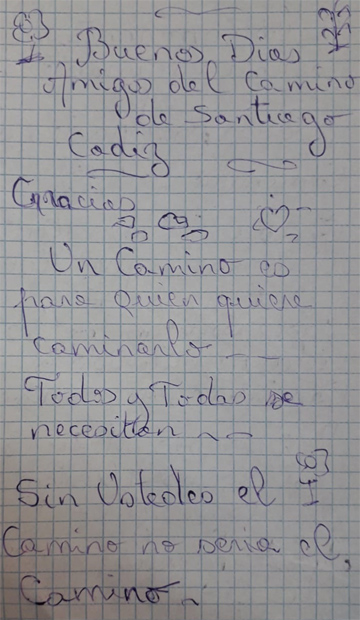 Buenos Dias
Amigos del Camino
de Santiago
Cadiz
Gracias
Un Camino es
para quien quiere
caminarlo _ _
Todos y Todas se
necesitan ~ ~
Sin Ustedes el
Camino no seria el,
Camino.~